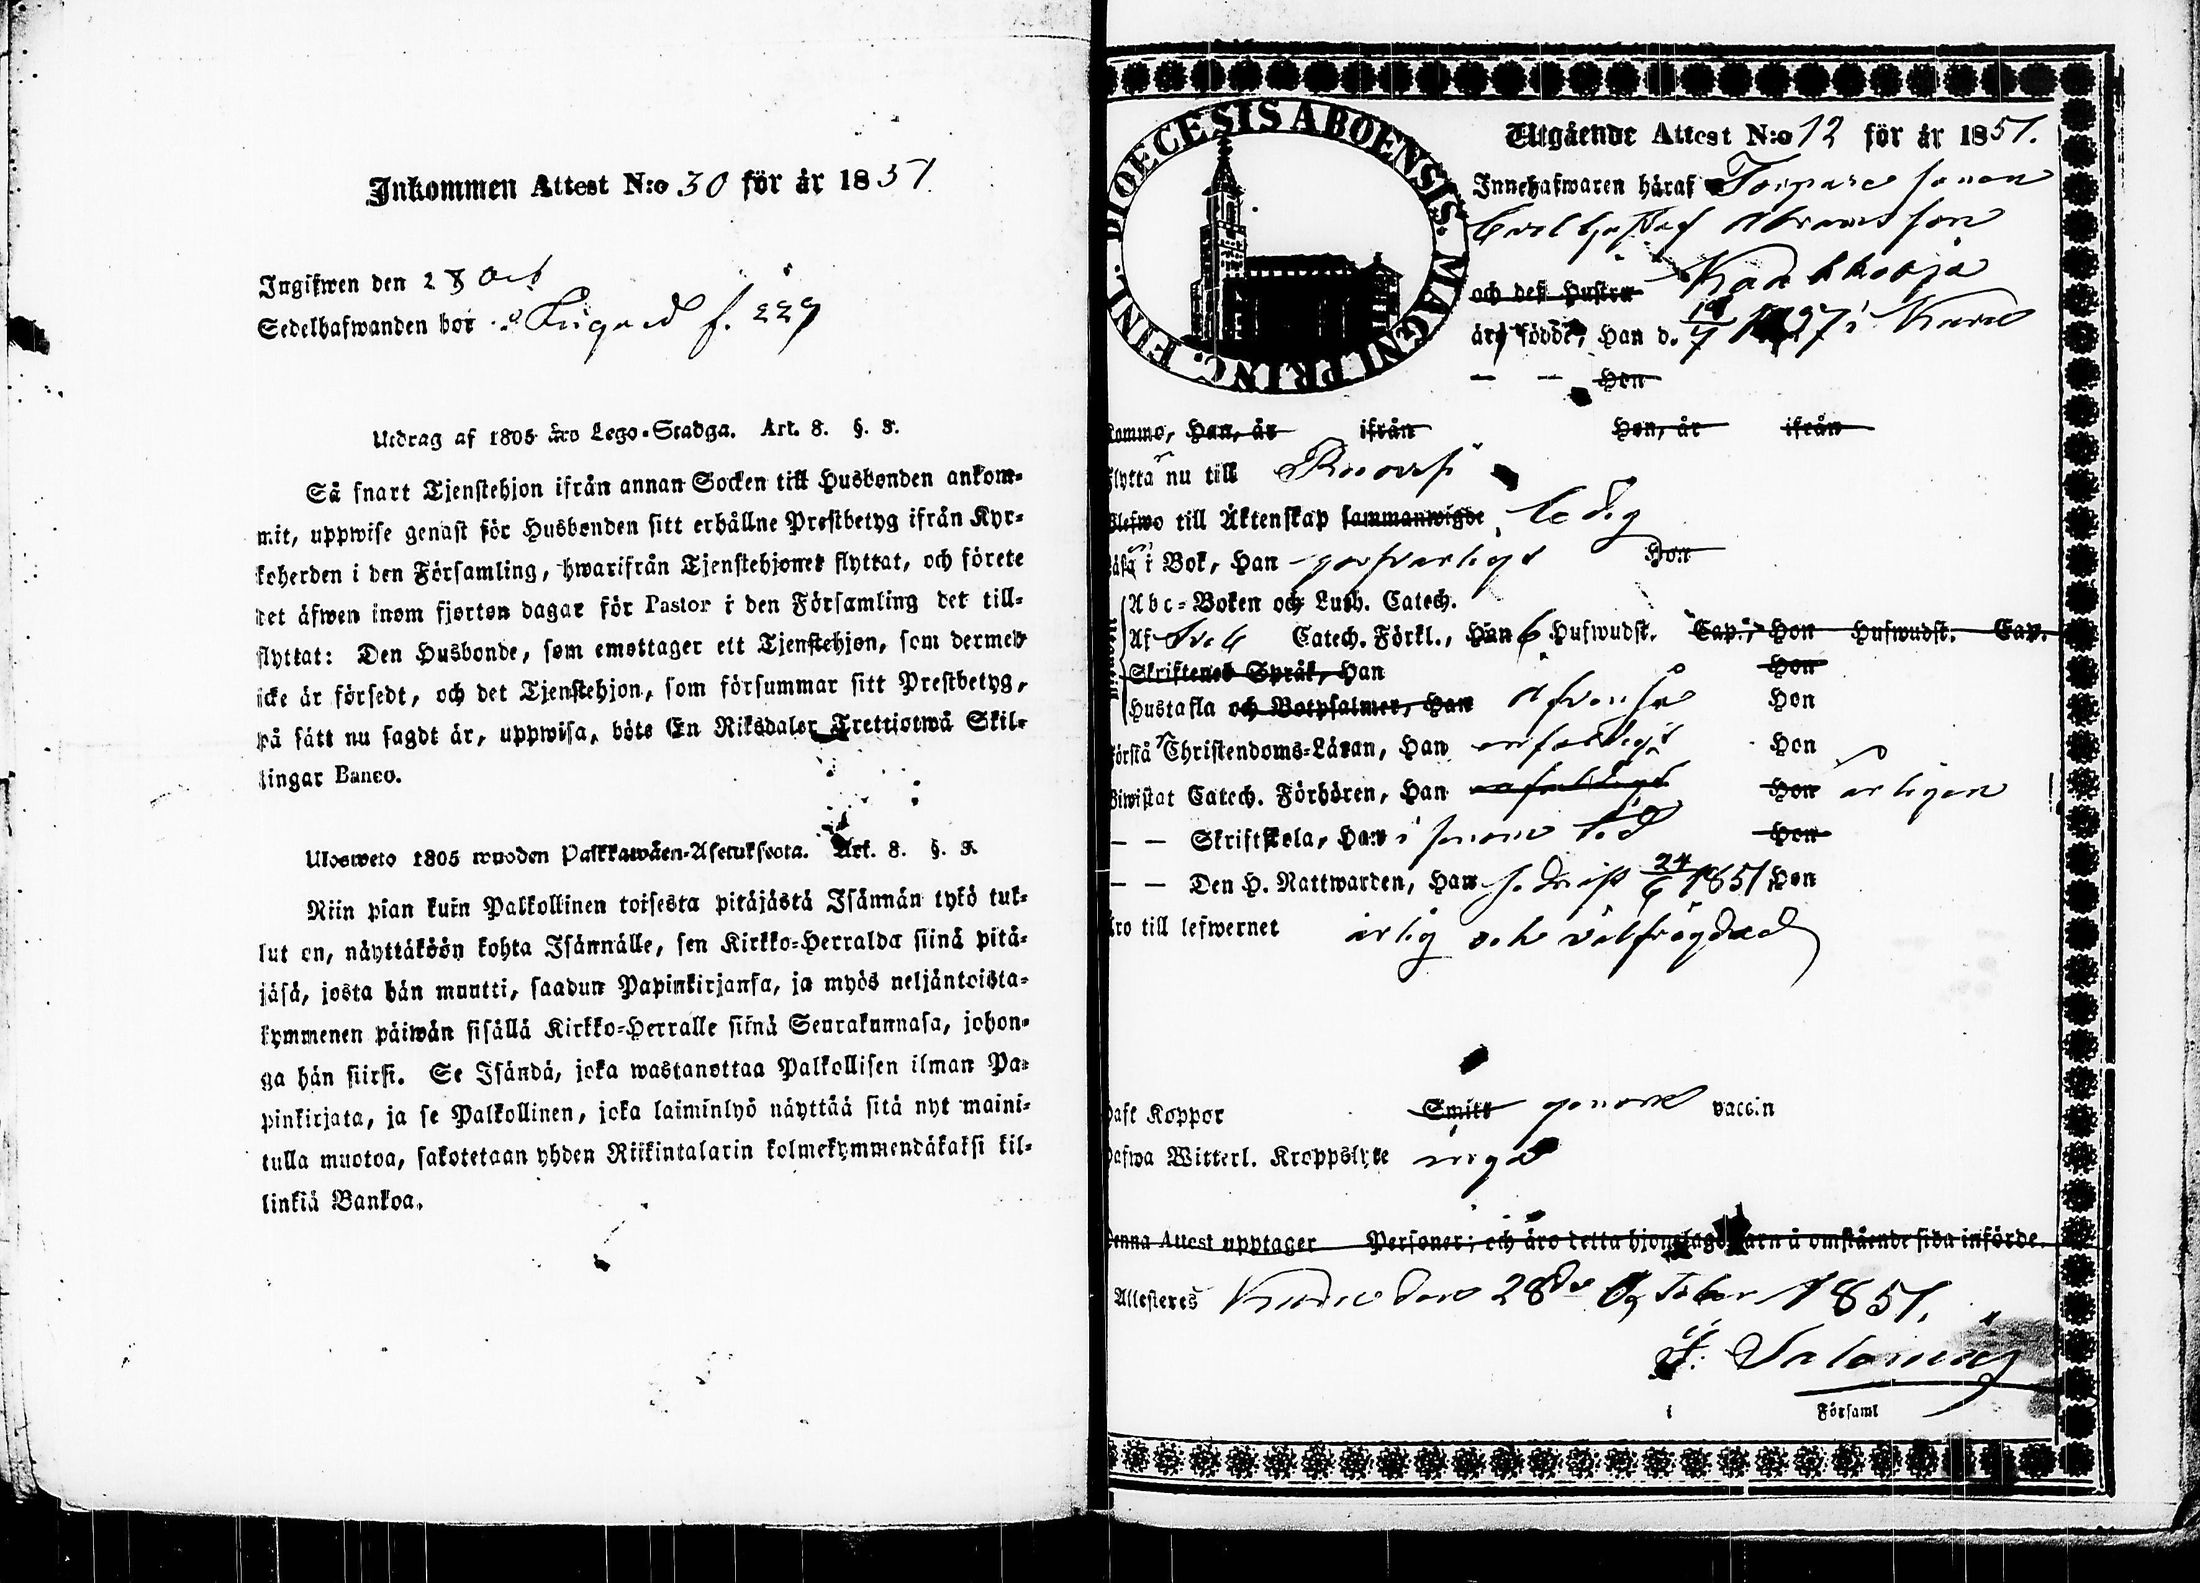 Inkommen Attest N:o 30 för år 1851.
Ingifwen den 28 Oct
Sedelhafwanden bor f. 229
Utdrag af 1805 års Lego-Stadga. Art. 8. §. 3.
Så snart Tjenstehjon ifrån annan Socken till Husbonden ankom-
mit, uppwise genast för Husbonden sitt erhållne Prestbetyg ifrån Kyr-
koherden i den Församling, hwarifrån Tjenstehjonet flyttat, och förete
det äfwen inom fjorton dagar för Pastor i den Församling det till-
flyttat: Den Husbonde, som emottager ett Tjenstehjon, som dermed
icke är försedt, och det Tjenstehjon, som försummar sitt Prestbetyg,
på sätt nu sagdt är, uppwisa, böte En Riksdaler Trettiotwå Skil-
lingar Banco.
Ulosweto 1805 wuoden Palkkawäen-Asetuksesta. Art. 8. §. 3.
Niin pian kuin Palkollinen toisesta pitäjästä Isännän tykö tul-
lut on, näyttäköön kohta Isännälle, sen Kirkko-Herralda siinä pitä-
jäsä, josta hän muutti, saadun Papinkirjansa, ja myös neljäntoista-
kymmenen päiwän sisällä Kirkko-Herralle siinä Seurakunnasa, johon-
ga hän siirsi. Se Isändä, joka wastanottaa Palkollisen ilman Pa-
pinkirjata, ja se Palkollinen, joka laiminlyö näyttää sitä nyt maini-
tulla muotoa, sakotetaan yhden Riikintalarin kolmekymmendäkaksi kil-
linkiä Bankoa.
DIOECESIS ABOENSIS. MAGNI PRINC. FINL.
Utgående Attest N:o 12 för år 1851.
Innehafwaren häraf Torpare sonen
Carl Gustaf Abramsson
och deß Hustru
äro födde, Han d. 1827 i
— — Hon
kommo, Han, år ifrån Hon, år ifrån
flytta nu till
Blefwo till Äktenskap sammanwigde ledig
Läsa i Bok, Han försvarligt Hon
Abc-Boken och Luth. Catech.
Af Sveb Catech. Förkl., Han 6 Hufwudst. Cap., Hon Hufwudst. Cap.
Skriftenes Språk, Han Hon
Hustafla och Botpsalmer, Han äfvenså Hon
Förstå Christendoms-Läran, Han enfaldigt Hon
Biwistat Catech. Förhören, Han Hon årligen
— — Skriftskola, Han i sinom tid Hon
— — Den H. Nattwarden, Han sednast 24/6 1851 Hon
Äro till lefwernet ärlig och välfrägdad
Haft Koppor Smitt genom vaccin
Hafwa Witterl. Kroppslyte inga
Denna Attest upptager Personer; och äro detta hjonelags barn å omstående sida införde.
Attesteres den 28de October 1851.
i Församl